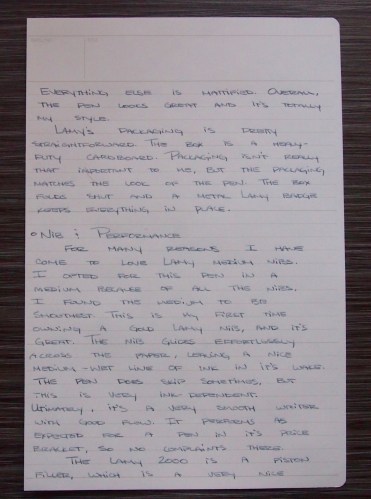 Everything else is mattified. Overall,
the pen looks great and it's totally
my style.
Lamy's packaging is pretty
straightforward. The box is a heavy-
duty cardboard. Packaging isn't really
that important to me, but the packaging
matches the look of the pen. The box
folds shut and a metal Lamy badge
keeps everything in place.
Nib & Performance
For many reasons I have
come to love Lamy medium nibs.
I opted for this pen in a
medium because of all the nibs,
I found the medium to be
smoothest. This is my first time
owning a gold Lamy nib, and it's
great. The nib glides effortlessly
across the paper, leaving a nice
medium-wet line of ink in it's wake.
The pen does skip sometimes, but
this is very ink dependent.
Ultimately, it's a very smooth writer
with good flow. It performs as
expected for a pen in it's price
bracket, so no complaints there.
The Lamy 2000 is a piston
filler, which is a very nice